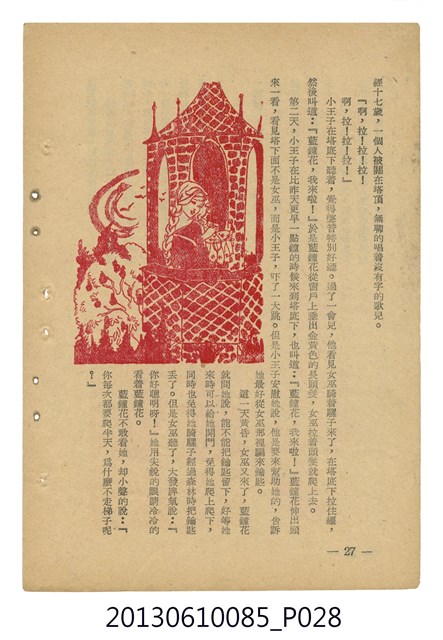 經十七歲，一個人被關在塔頂，無聊的唱着沒有字的歌兒。
『啊，拉！拉！拉！
啊，拉！拉！拉！』
小王子在塔底下聽着，覺得聲音特別好聽。過了一會兒，他看見女巫騎着騾子來了，在塔底下拉住韁，
然後叫道：『藍鐘花，我來啦！』於是藍鐘花從窗戶上垂出金黃色的長頭髮，女巫拉着頭髮就爬上去。
第二天，小王子在比昨天更早一點鐘的時候來到塔底下，也叫道：『藍鐘花，我來啦！』藍鐘花伸出頭
來一看，看見塔下面不是女巫，而是小王子，吓了一大跳。但是小王子安慰她說，他是要來幫助她的，告訴
她最好從女巫那裡騙來鑰匙。
這一天黃昏，女巫又來了，藍鐘花
就問她說，能不能把鑰匙留下，好等她
來時可以給她開門，免得她爬上爬下，
同時也免得她騎騾子經過森林時把鑰匙
丟了。但是女巫聽了，大發脾氣說：『
你好聰明呀！』她用尖銳的眼睛冷冷的
看着藍鐘花。
藍鐘花不敢看她，却小聲的說：『
你每次都要爬半天，爲什麼不走梯子呢
？』
— 27 —
20130610085_P028